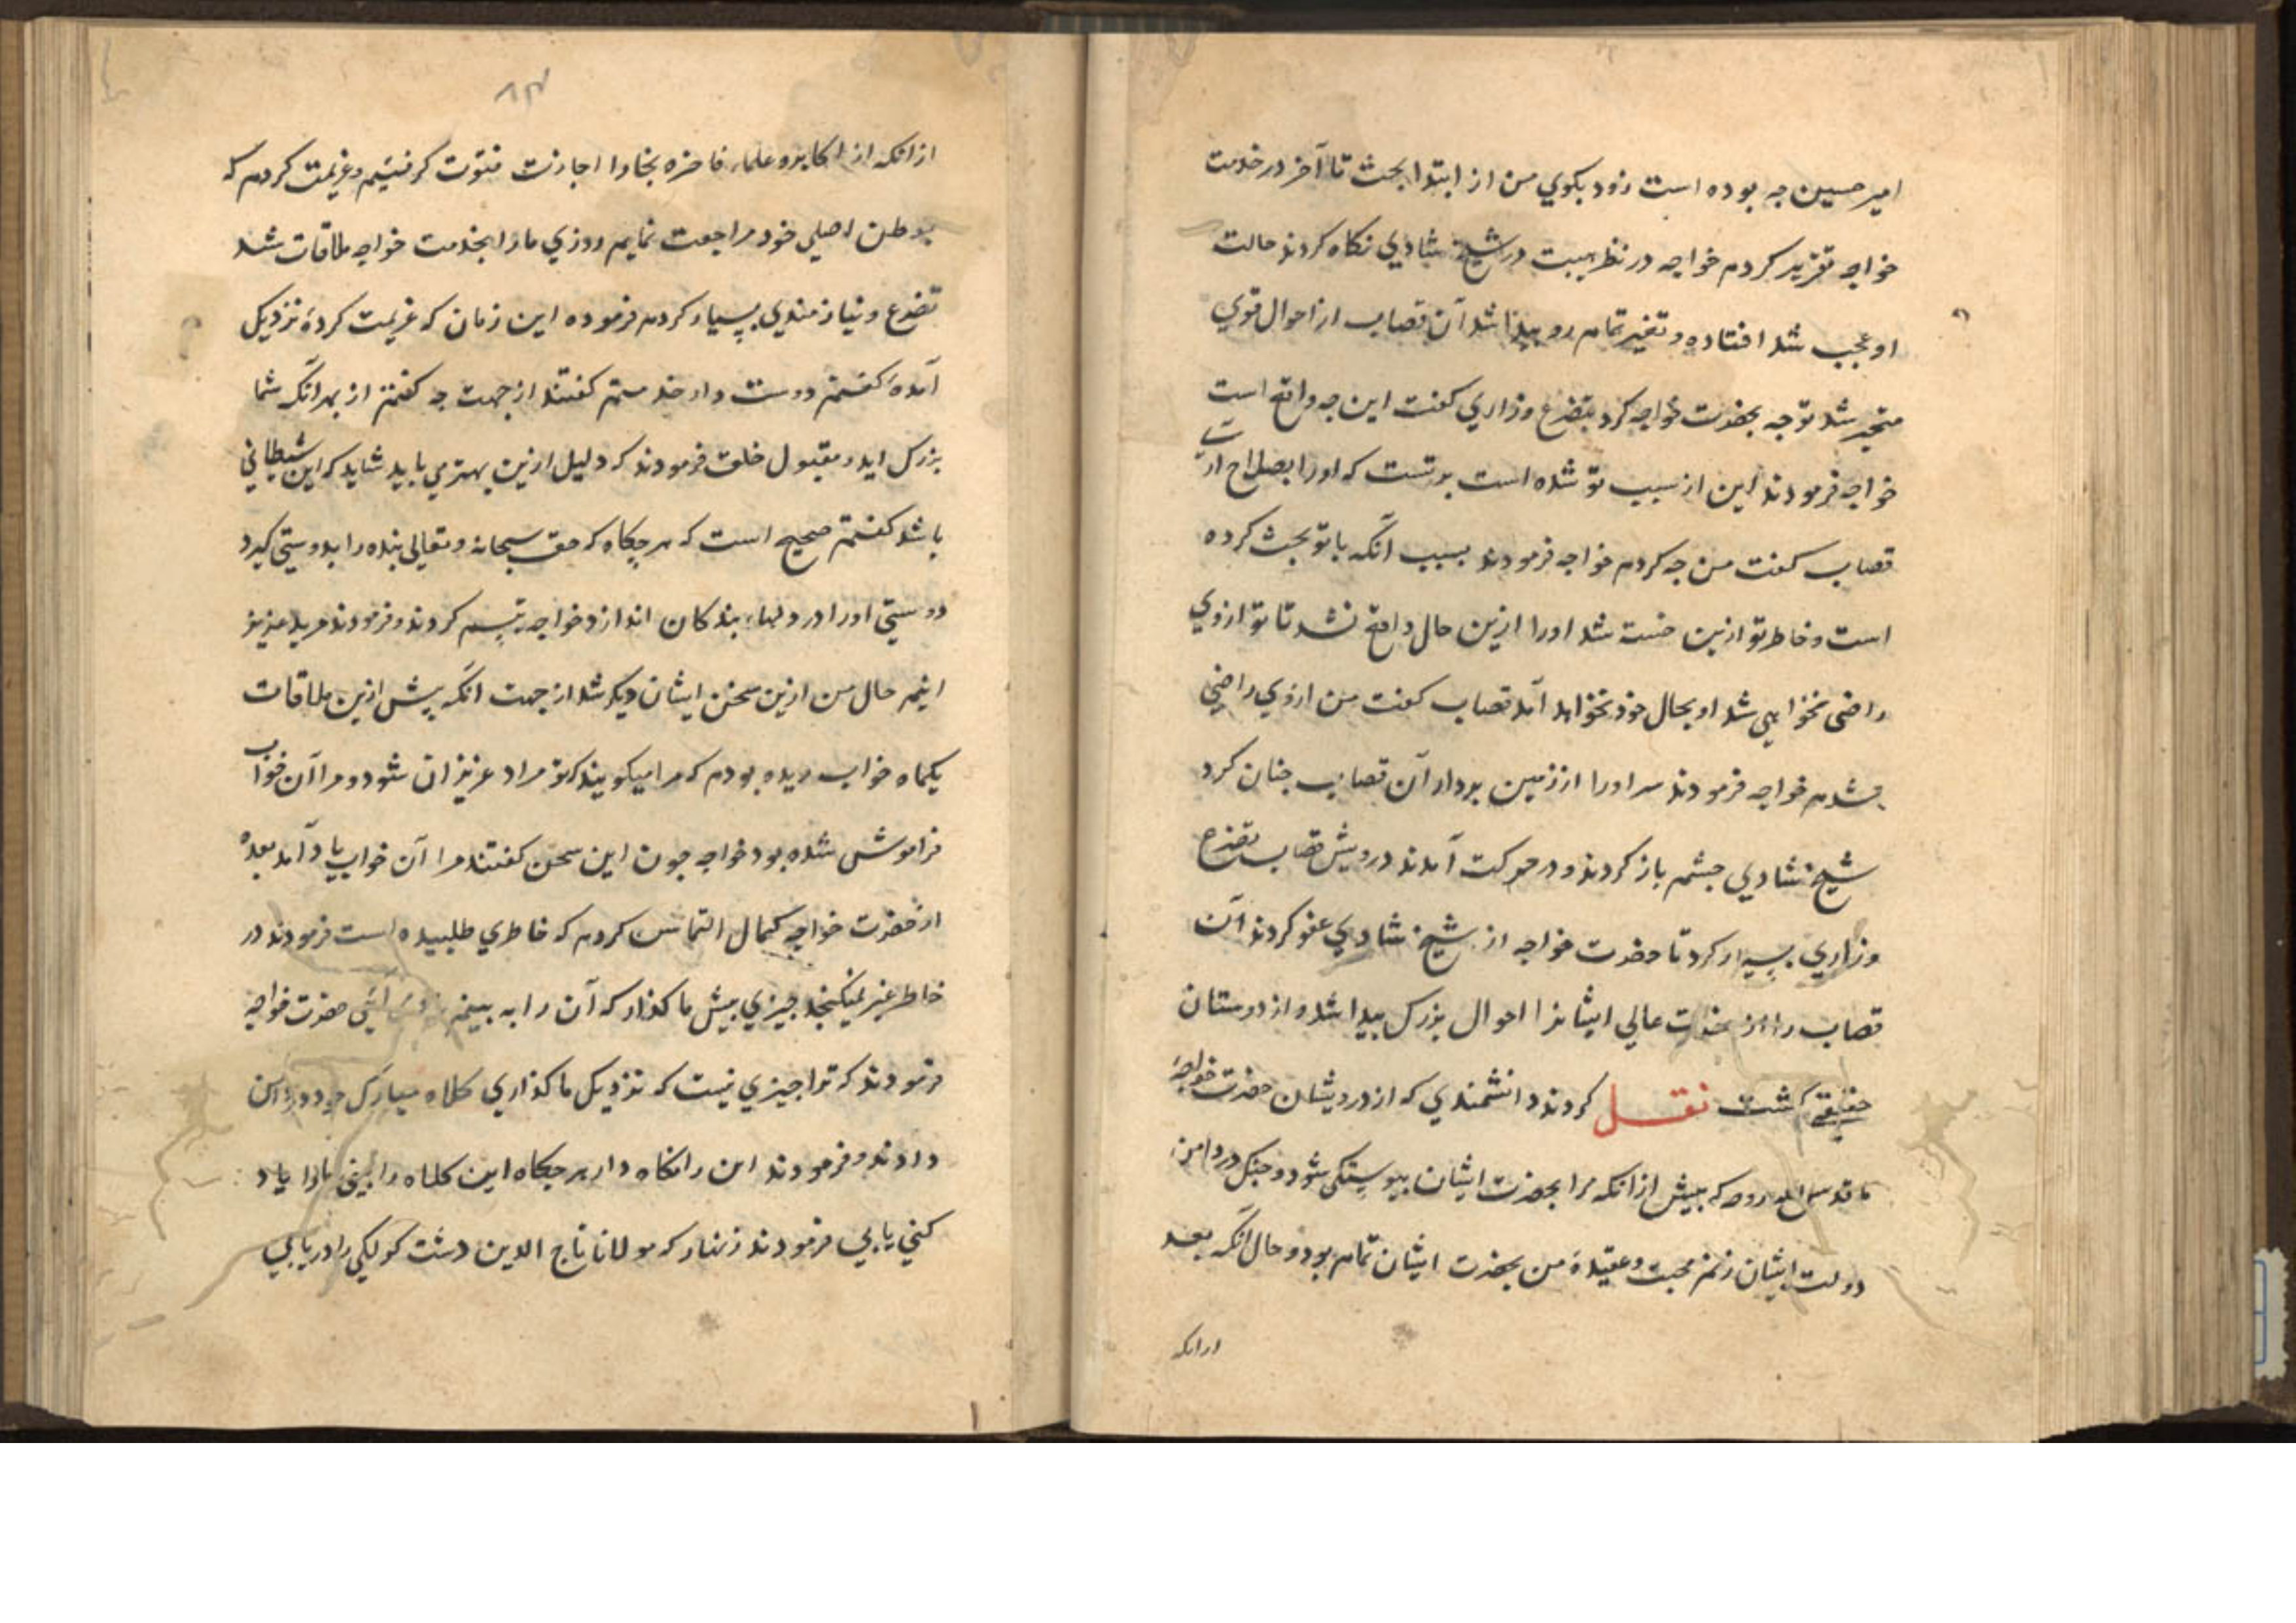 امیر حسین جه بوده است زود بکوي من از ابتدا بحث تا آخر در خدمت
خواجه تقریر کردم خواجه در نظر هیبت در شیخ شادي نکاه کردند حالت
او عجب شد افتاده و تغیر تمام رو پیدا شد آن قصاب از احوال قوي
متحیر شد توجه بحضرت خواجه کرد بتضرع و زاري کفت این جه واقع است
خواجه فرمودند این از سبب تو شده است برتست که اورا بصلاح اري
قصاب کفت من جه کردم خواجه فرمودند بسبب آنکه با تو بحث کرده
است و خاطر تو ازین خسته شد اورا ازین حال واقع نشد تا تو ازوي
راضی نخواهي شد او بحال خود نخواهد آمد قصاب کفت من ازوي راضي
شدم خواجه فرمودند سر اورا از زمین بردار آن قصاب جنان کرد
شیخ شادي جشم باز کردند و در حرکت آمدند درویش قصاب تضرع
و زاري بسیار کرد تا حضرت خواجه از شیخ شادي عفو کردند آن
قصاب را از حضرت عالي ایشانرا احوال بزرک پیدا شد و از دوستان
حقیقي کشت نقل کردند دانشمندي که از درویشان حضرت خواجۀ
ما قدس الله روحه که پیش ازانکه مرا بحضرت ایشان پیوستکی شود و جنک در دامن
دولت ایشان زنم محبت و عقیدۀ من بحضرت ایشان تمام بود و حال آنکه بعد
ازانکه
۸۳
ازانکه از اکابر و علماء فاخره بخارا اجازت فتوت کرفتیم و عزیمت کردم که
بوطن اصلي خود مراجعت نمایم روزي مارا بخدمت خواجه ملاقات شد
تضرع و نیازمندي بسیار کردم فرموده این زمان که عزیمت کردۀ نزدیک
آمدۀ کفتم دوست دار خدمتم کفتند از جهت جه کفتم از بهر آنکه شما
بزرک اید و مقبول خلق فرمودند که دلیل ازین بهتر مي باید شاید که این شیطاني
باشد کفتم صحیح است که هرجکاه که حق سبحانه و تعالی بنده را بدوستي کیرد
دوستي اورا در دلهاء بندکان اندازد خواجه تبسم کردند و فرمودند مرید عزیز
اینم حال من ازین سخن ایشان دیکر شد از جهت انکه پیش ازین ملاقات
یکماه خواب دیده بودم که مرا میکویند که تو مراد عزیزان شود و مرا آن خواب
فراموش شده بود خواجه جون این سخن کفتند مرا آن خواب یاد آمد بعده
از حضرت خواجه کمال التماس کردم که خاطري طلبیده است فرمودند در
خاطر غیر نمیکنجد جیزي پیش ما کذار که آن را به بینم حضرت خواجه
فرمودند که ترا جیزي نیست که نزدیک ما کذاري کلاه مبارک خود
دادند و فرمودند این را نکاه دار هرجکاه این کلاه را بیني مارا یاد
کني یابي فرمودند زنهار که مولانا تاج الدین دشت کولکي را دریابي